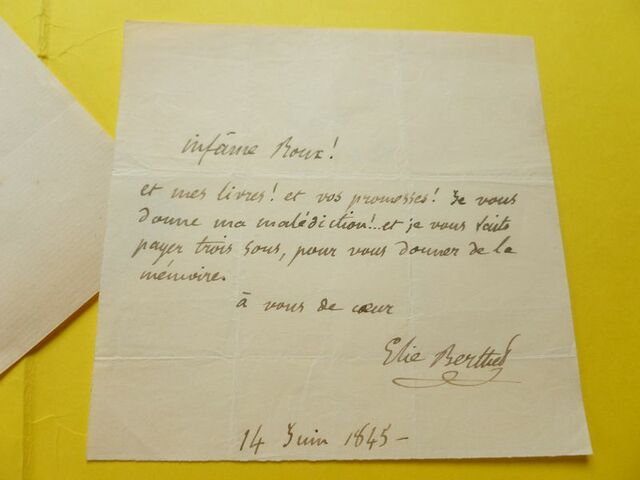 infâme Roux!
et mes livres! et vos promesses! je vous
donne ma malédiction!.. et je vous faits
payer trois sous, pour vous donner de la
mémoire.
à vous de cœur
Elie Berthet
14 Juin 1845 -